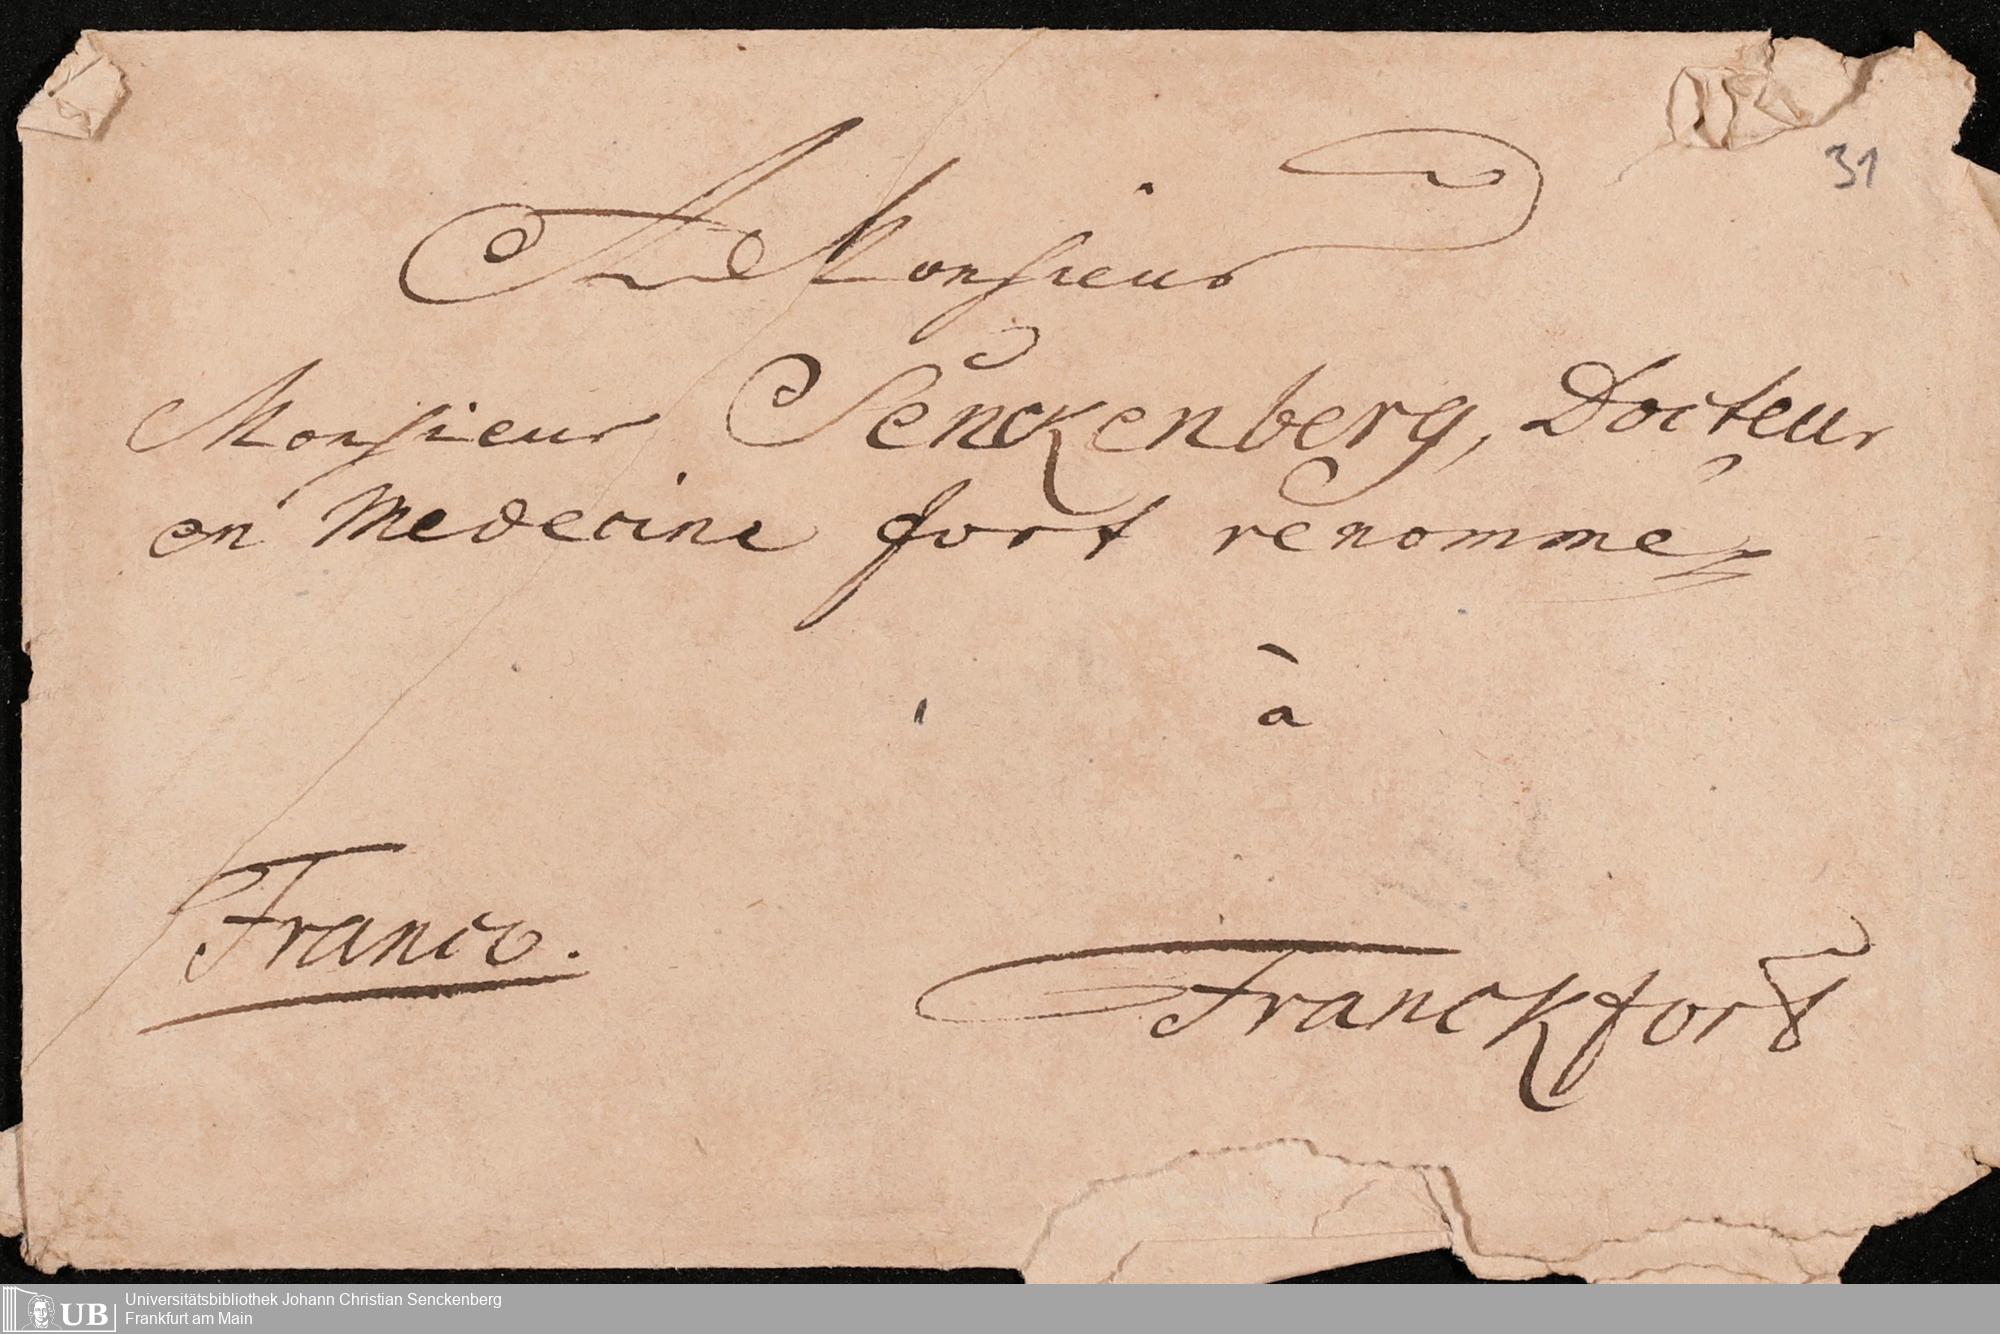 31
A Monsieur
Monsieur Senckenberg, Docteur
en Medecine fort renommé
à
Franco.
Franckfort
UB
Universitätsbibliothek Johann Christian Senckenberg
Frankfurt am Main